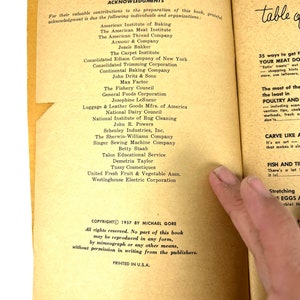 ACKNOWLEDGMENTS
For their valuable contributions to the preparation of this book, grateful
acknowledgment is due the following individuals and organizations:
American Institute of Baking
The American Meat Institute
The American Thread Company
Armour & Company
Jessie Bakker
The Carpet Institute
Consolidated Edison Company of New York
Consolidated Trimming Corporation
Continental Baking Company
John Dritz & Sons
Max Factor
The Fishery Council
General Foods Corporation
Josephine LeSueur
Luggage & Leather Goods Mfrs. of America
National Dairy Council
National Institute of Rug Cleaning
John R. Powers
Schenley Industries, Inc.
The Sherwin-Williams Company
Singer Sewing Machine Company
Betty Staab
Talon Educational Service
Demetria Taylor
Tussy Cosmetiques
United Fresh Fruit & Vegetable Assn.
Westinghouse Electric Corporation
COPYRIGHT© 1957 BY MICHAEL GORE
All rights reserved. No part of this book
may be reproduced in any form,
by mimeograph or any other means,
without permission in writing from the publishers.
PRINTED IN U.S.A.
table o
35 ways to get
YOUR MEAT DO
The most of the
the least in
POULTRY AND
CARVE LIKE A
FISH AND
There's a lot
Stretching
EGGS